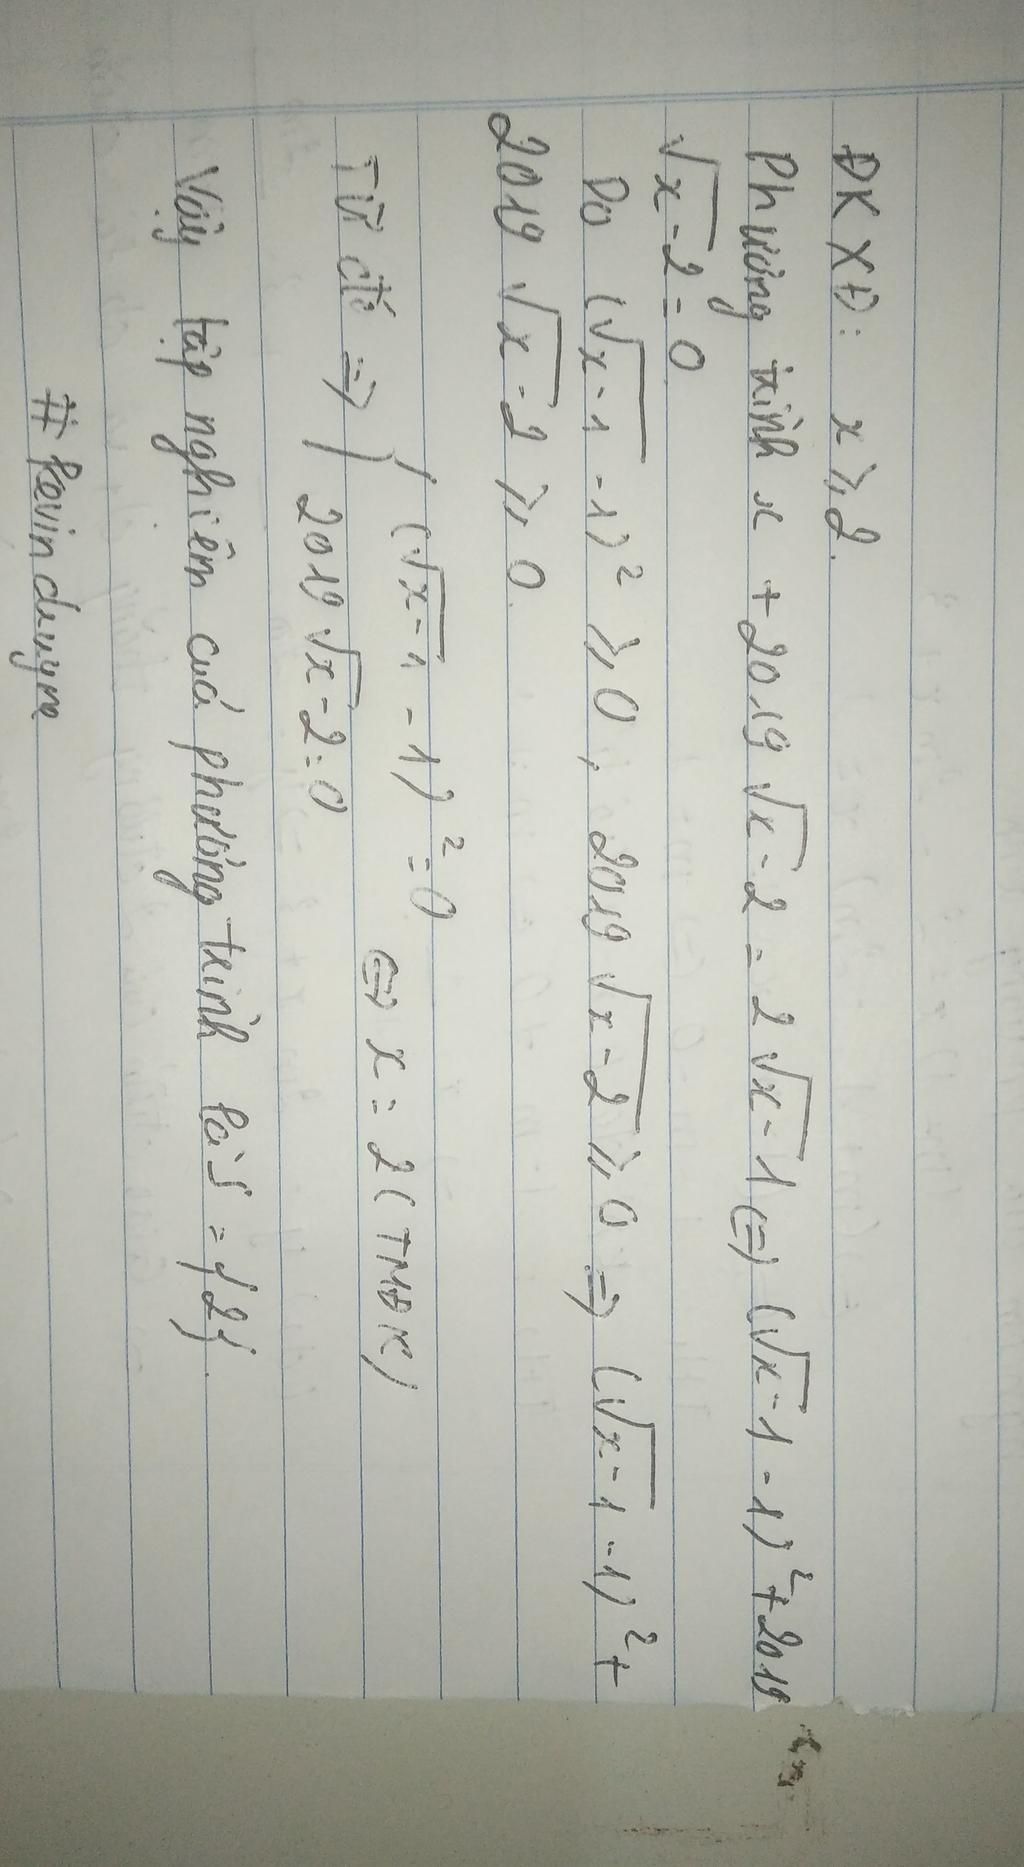 ĐKXĐ: x ≥ 2.
Phương trình x + 2019 √x-2 = 2 √x-1 (=) (√x-1 - 1)² + 2019
√x-2 = 0
Do (√x-1 - 1)² ≥ 0, 2019 √x-2 ≥ 0 => (√x-1 - 1)² +
2019 √x-2 ≥ 0.
Từ đó => { (√x-1 - 1)² = 0
2019 √x-2 = 0 <=> x = 2 (TMĐK)
Vậy tập nghiệm của phương trình là S = {2}.